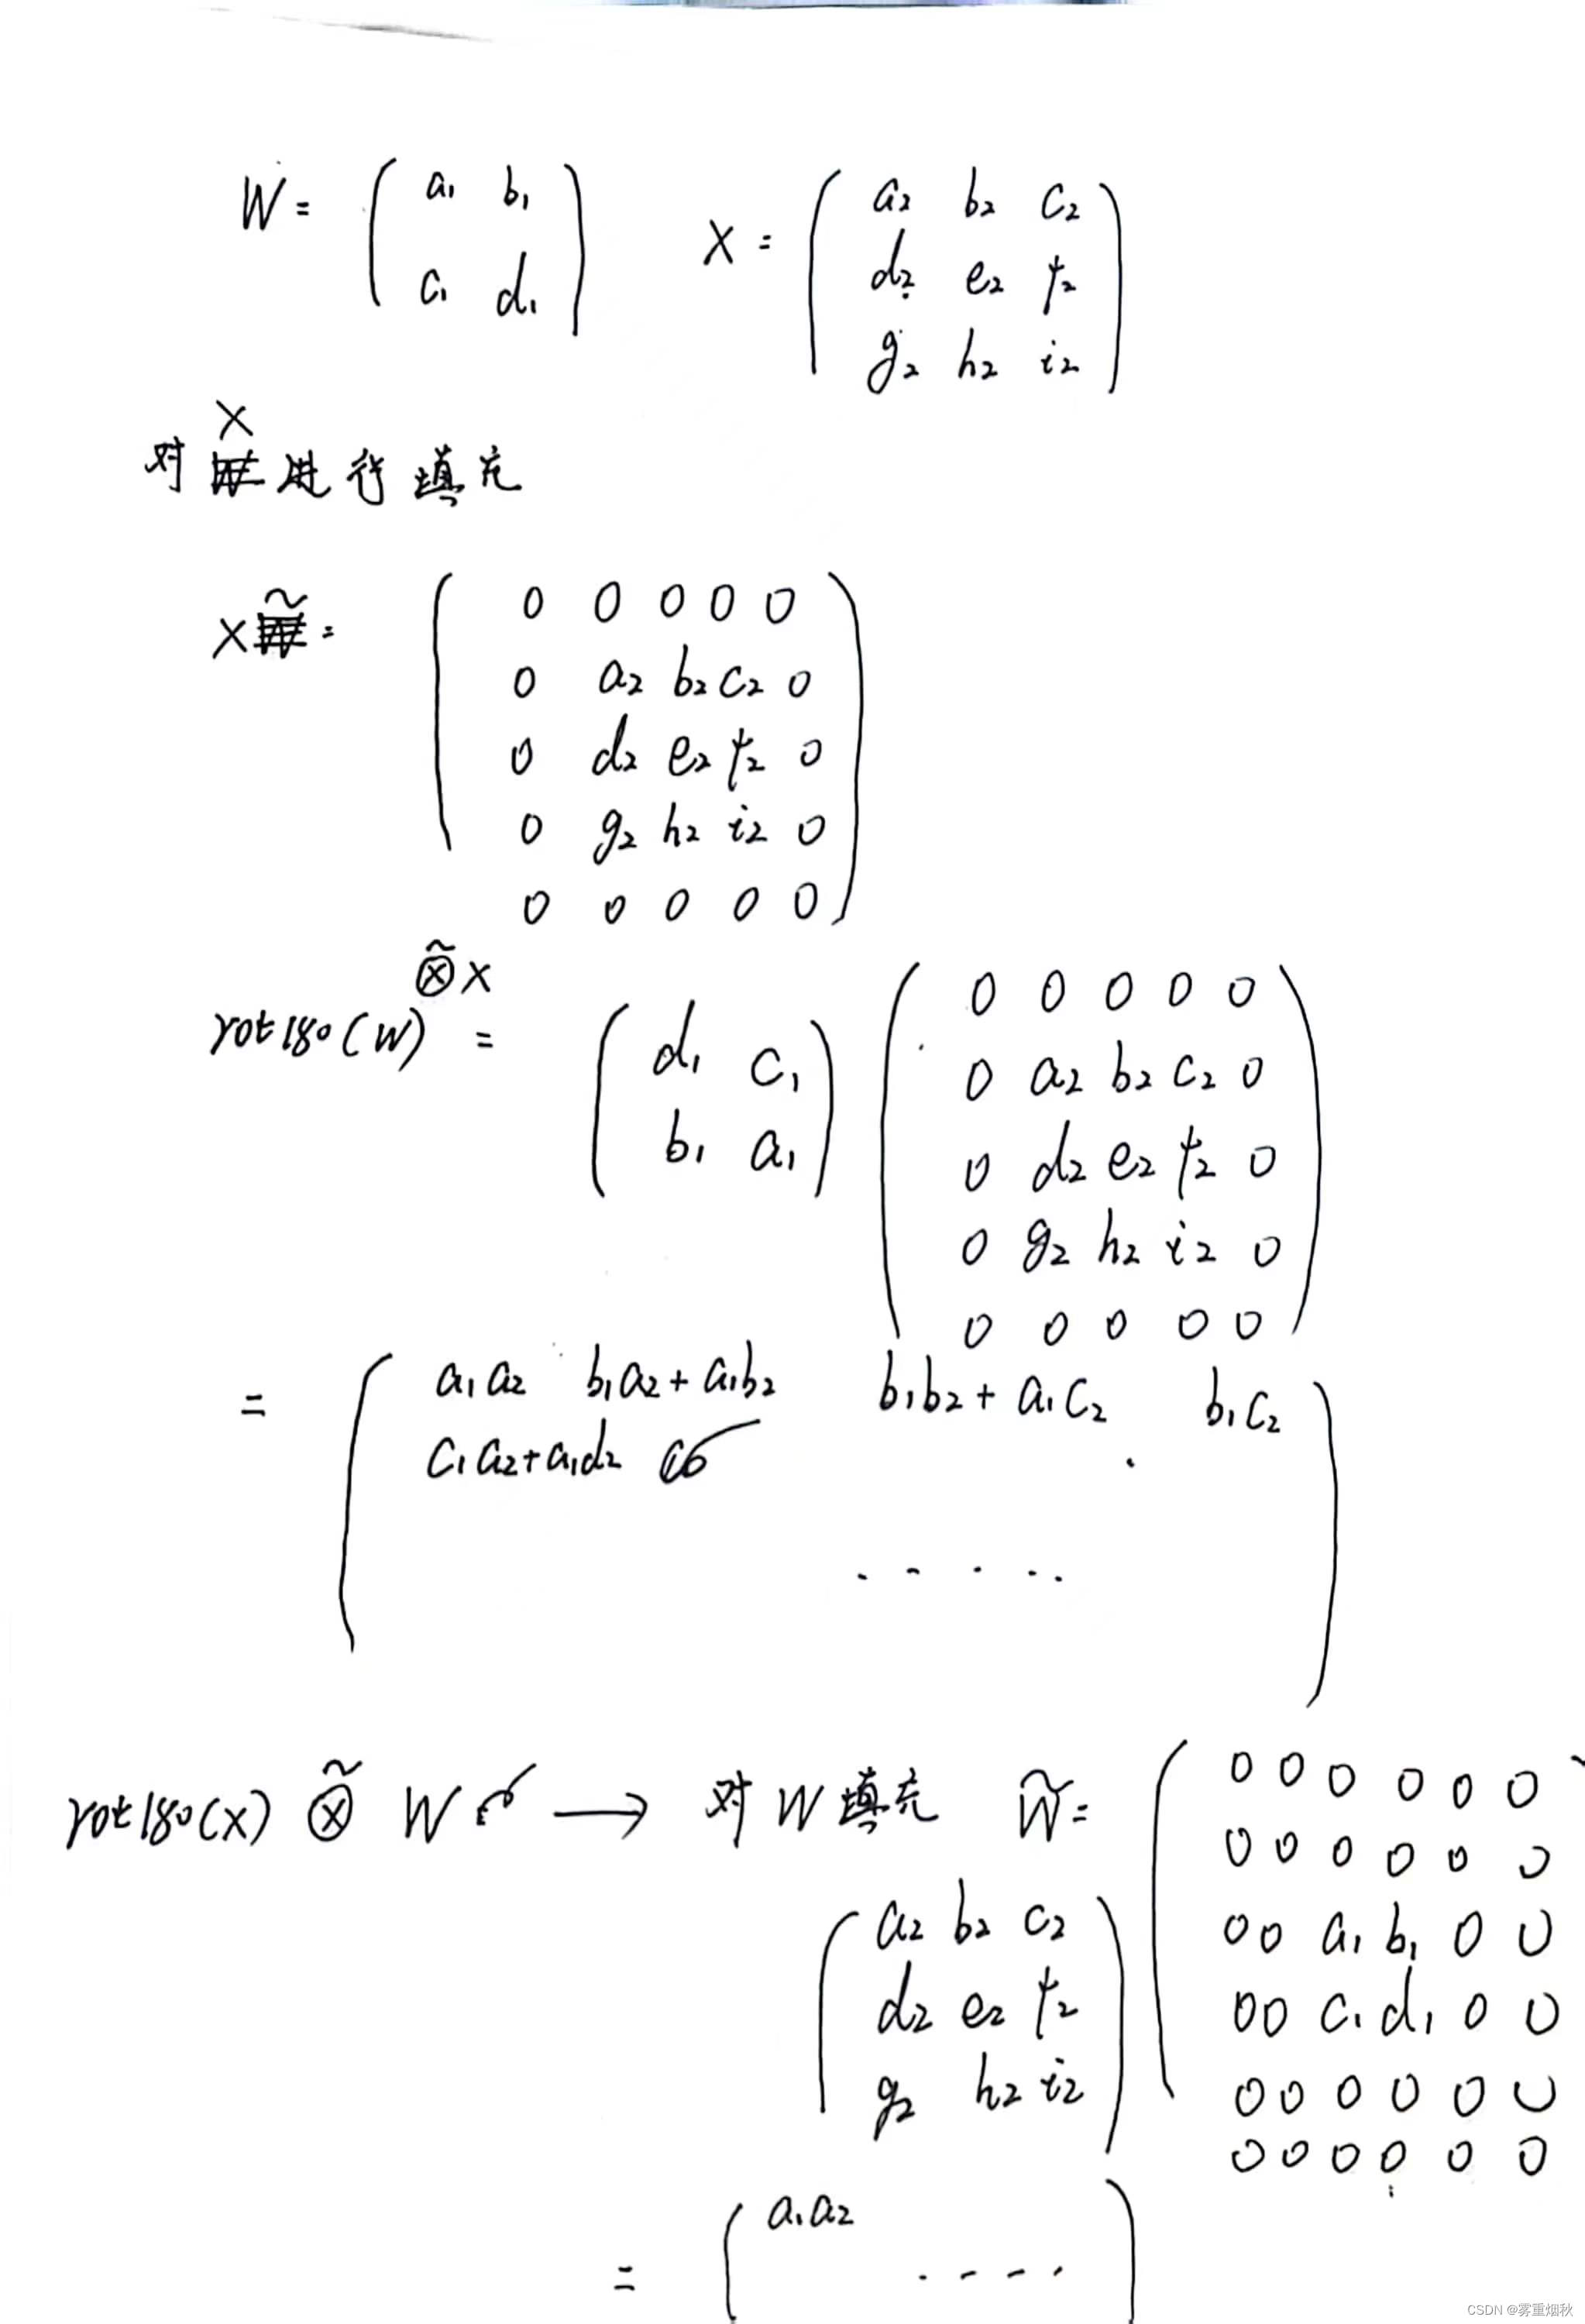 W = ( a₁ b₁
c₁ d₁ )
X = ( a₂ b₂ c₂
d₂ e₂ f₂
g₂ h₂ i₂ )
X
对 进行填充
X̃ = ( 0 0 0 0 0
0 a₂ b₂ c₂ 0
0 d₂ e₂ f₂ 0
0 g₂ h₂ i₂ 0
0 0 0 0 0 )
rot180(W) ⊗̃ X = ( d₁ c₁
b₁ a₁ )
( 0 0 0 0 0
0 a₂ b₂ c₂ 0
0 d₂ e₂ f₂ 0
0 g₂ h₂ i₂ 0
0 0 0 0 0 )
= ( a₁a₂ b₁a₂+a₁b₂ b₁b₂+a₁c₂ b₁c₂
c₁a₂+a₁d₂
. . . . . )
rot180(X) ⊗̃ W → 对W填充 W̃ =
( 0 0 0 0 0 0
0 0 0 0 0 0
0 0 a₁ b₁ 0 0
0 0 c₁ d₁ 0 0
0 0 0 0 0 0
0 0 0 0 0 0
( a₂ b₂ c₂
d₂ e₂ f₂
g₂ h₂ i₂ )
= ( a₁a₂
. . . . . )
CSDN @雾重烟秋